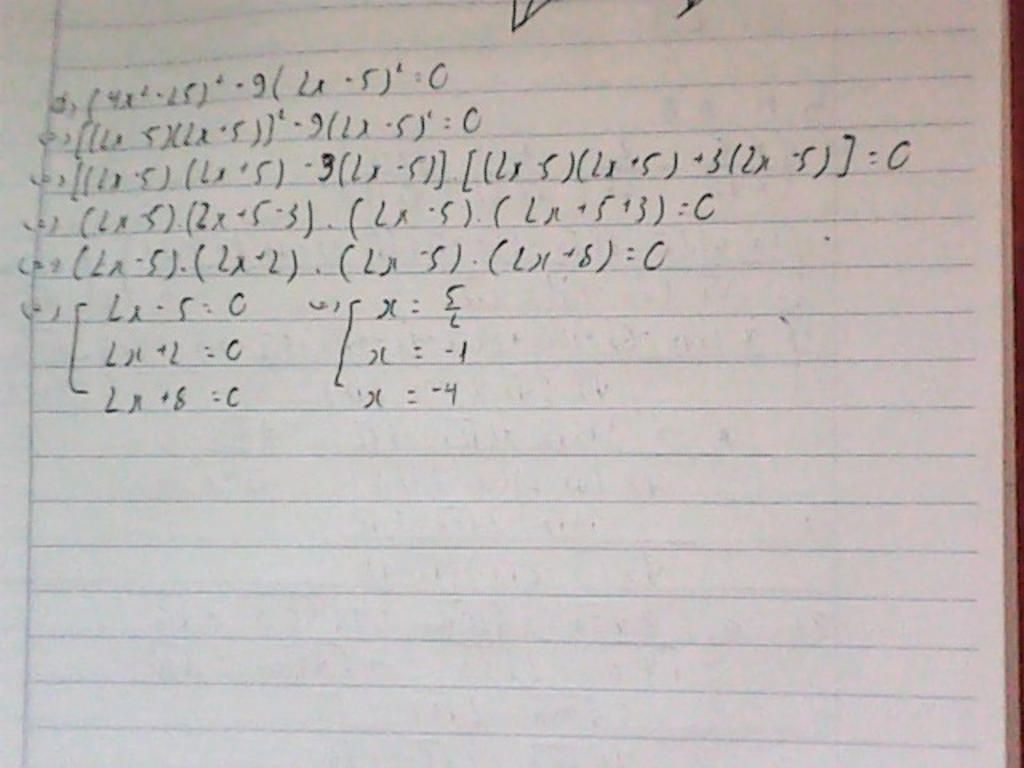 d, (4x² - 25)² - 9(2x - 5)² = 0
⇔ [(2x - 5)(2x + 5)]² - 9(2x - 5)² = 0
⇔ [(2x - 5)(2x + 5) - 3(2x - 5)].[(2x - 5)(2x + 5) + 3(2x - 5)] = 0
⇔ (2x - 5).(2x + 5 - 3).(2x - 5).(2x + 5 + 3) = 0
⇔ (2x - 5).(2x + 2).(2x - 5).(2x + 8) = 0
⇔ [ 2x - 5 = 0 ⇔ [ x = 5/2
2x + 2 = 0 x = -1
2x + 8 = 0 x = -4